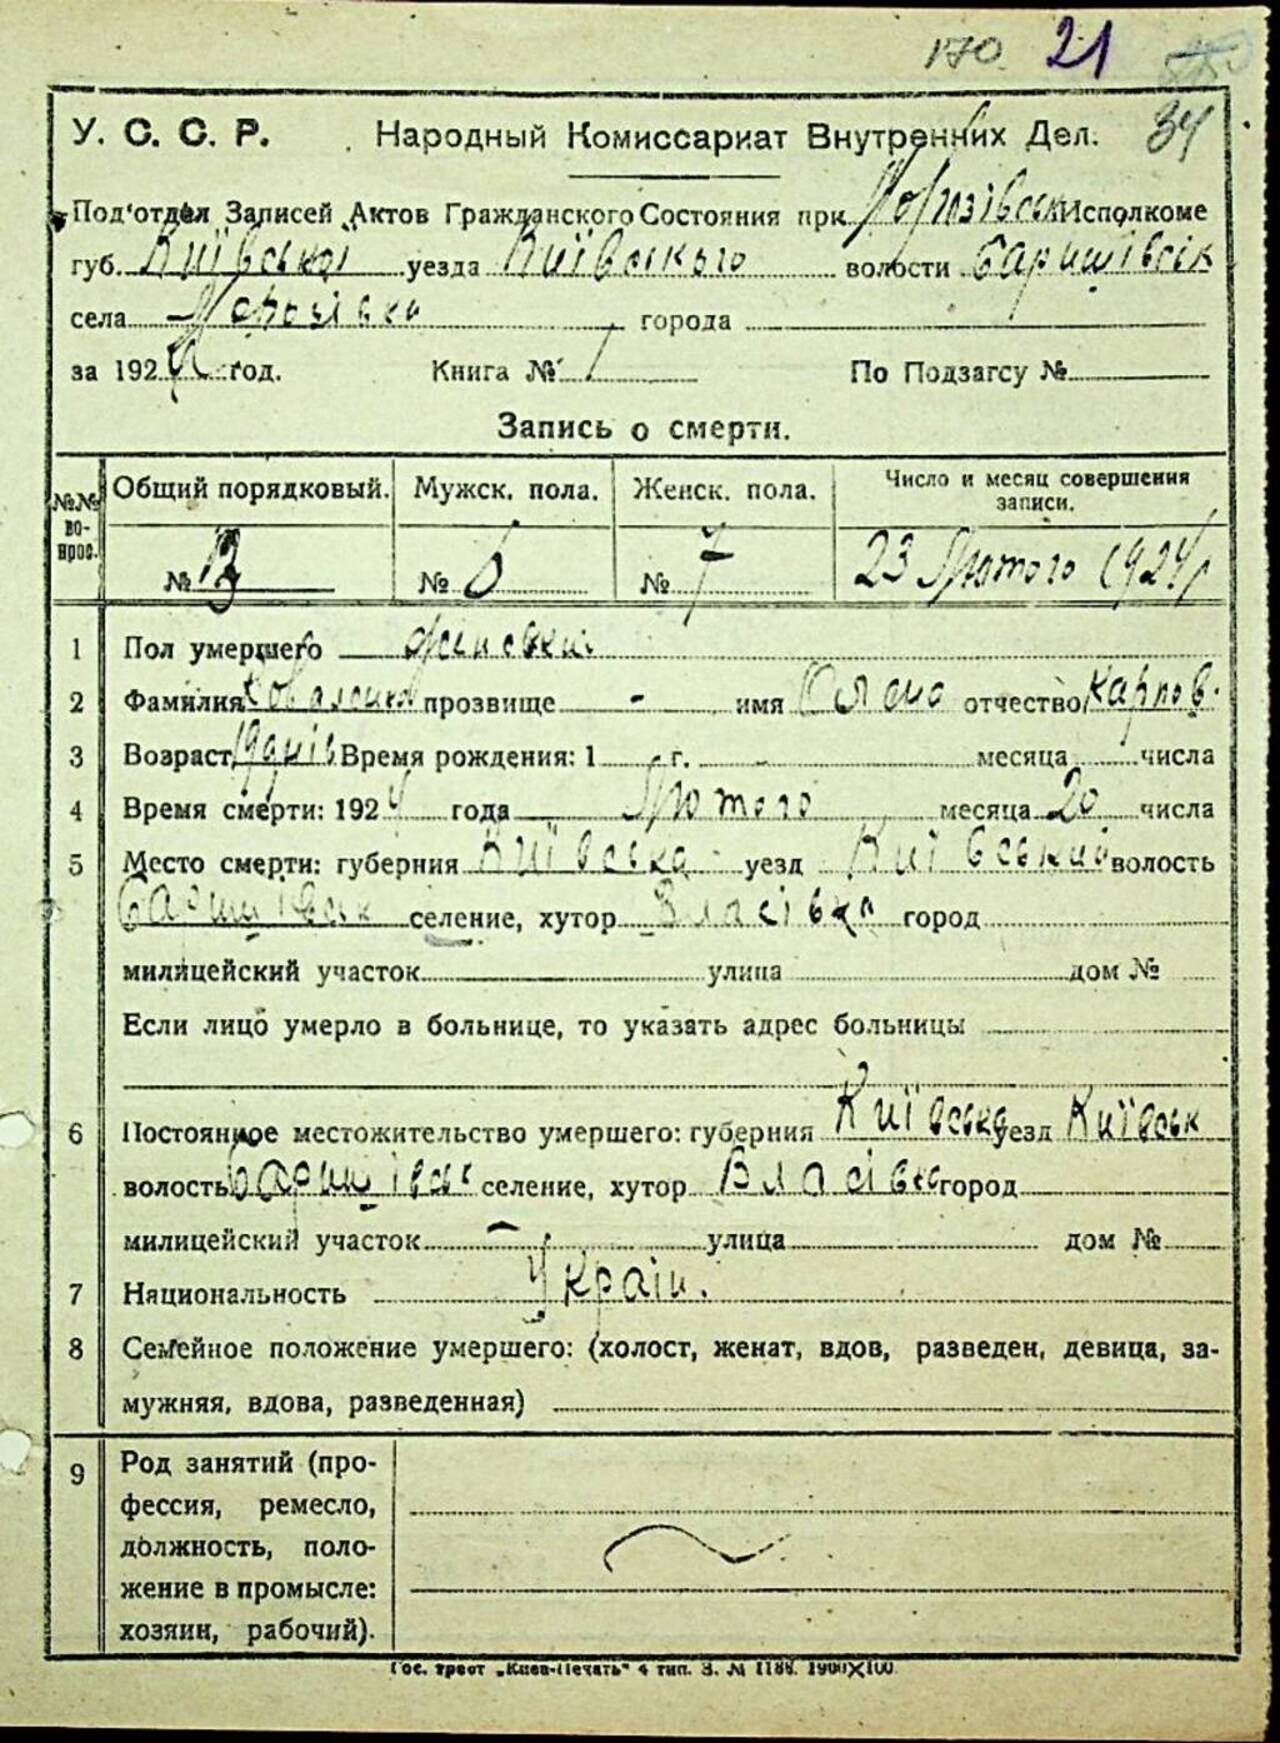 170. 21
34
У. С. С. Р. Народный Комиссариат Внутренних Дел.
Под'отдел Записей Актов Гражданского Состояния при Исполкоме
губ. Київської уезда Київського волости Баришівськ
села города
за 1924 год. Книга № 1 По Подзагсу №
Запись о смерти.
№№ во-прос. Общий порядковый. Мужск. пола. Женск. пола. Число и месяц совершения записи.
№ 13 № 6 № 7 23 Лютого 1924 р
1 Пол умершего женський
2 Фамилия прозвище - имя Олена отчество Карпов.
3 Возраст 19 днів Время рождения: 1 г. месяца числа
4 Время смерти: 1924 года Лютого месяца 20 числа
5 Место смерти: губерния Київська уезд Київський волость
Баришівськ селение, хутор Власівка город
милицейский участок улица дом №
Если лицо умерло в больнице, то указать адрес больницы
6 Постоянное местожительство умершего: губерния Київська уезд Київськ
волость Баришівськ селение, хутор Власівка город
милицейский участок улица дом №
7 Национальность Україн.
8 Семейное положение умершего: (холост, женат, вдов, разведен, девица, за-
мужняя, вдова, разведенная)
9 Род занятий (про-
фессия, ремесло,
должность, поло-
жение в промысле:
хозяин, рабочий).
Гос. трест „Киев-Печать" 4 тип. З. № 1188. 1900X100